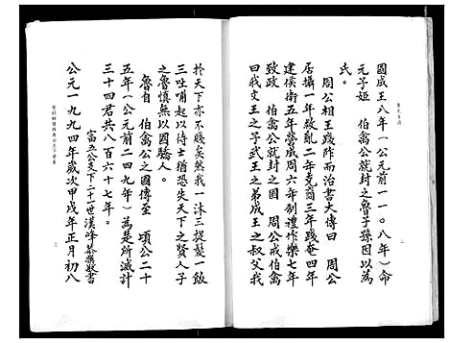 國成王八年（公元前一一〇八年）命
元子姬　伯禽公就封之魯子孫因以為
氏。
周公相王踐阼而治書大傳曰　周公
居攝一年救亂二年克殷三年踐奄四年
建侯衛五年營成周六年制禮作樂七年
致政　伯禽公就封之國　周公戒伯禽
曰我文王之子武王之弟成王之叔父我
於天下亦不賤矣然我一沐三捉髮一飯
三吐哺起以待士猶恐失天下之賢人子
之魯慎無以國驕人。
魯自　伯禽公之國傳至　頃公二十
五年（公元前二四九年）為楚所滅計
三十四君共八百六十七年。
富五公天下二十一世漢峰　敬書
公元一九九四年歲次甲戌年正月初八